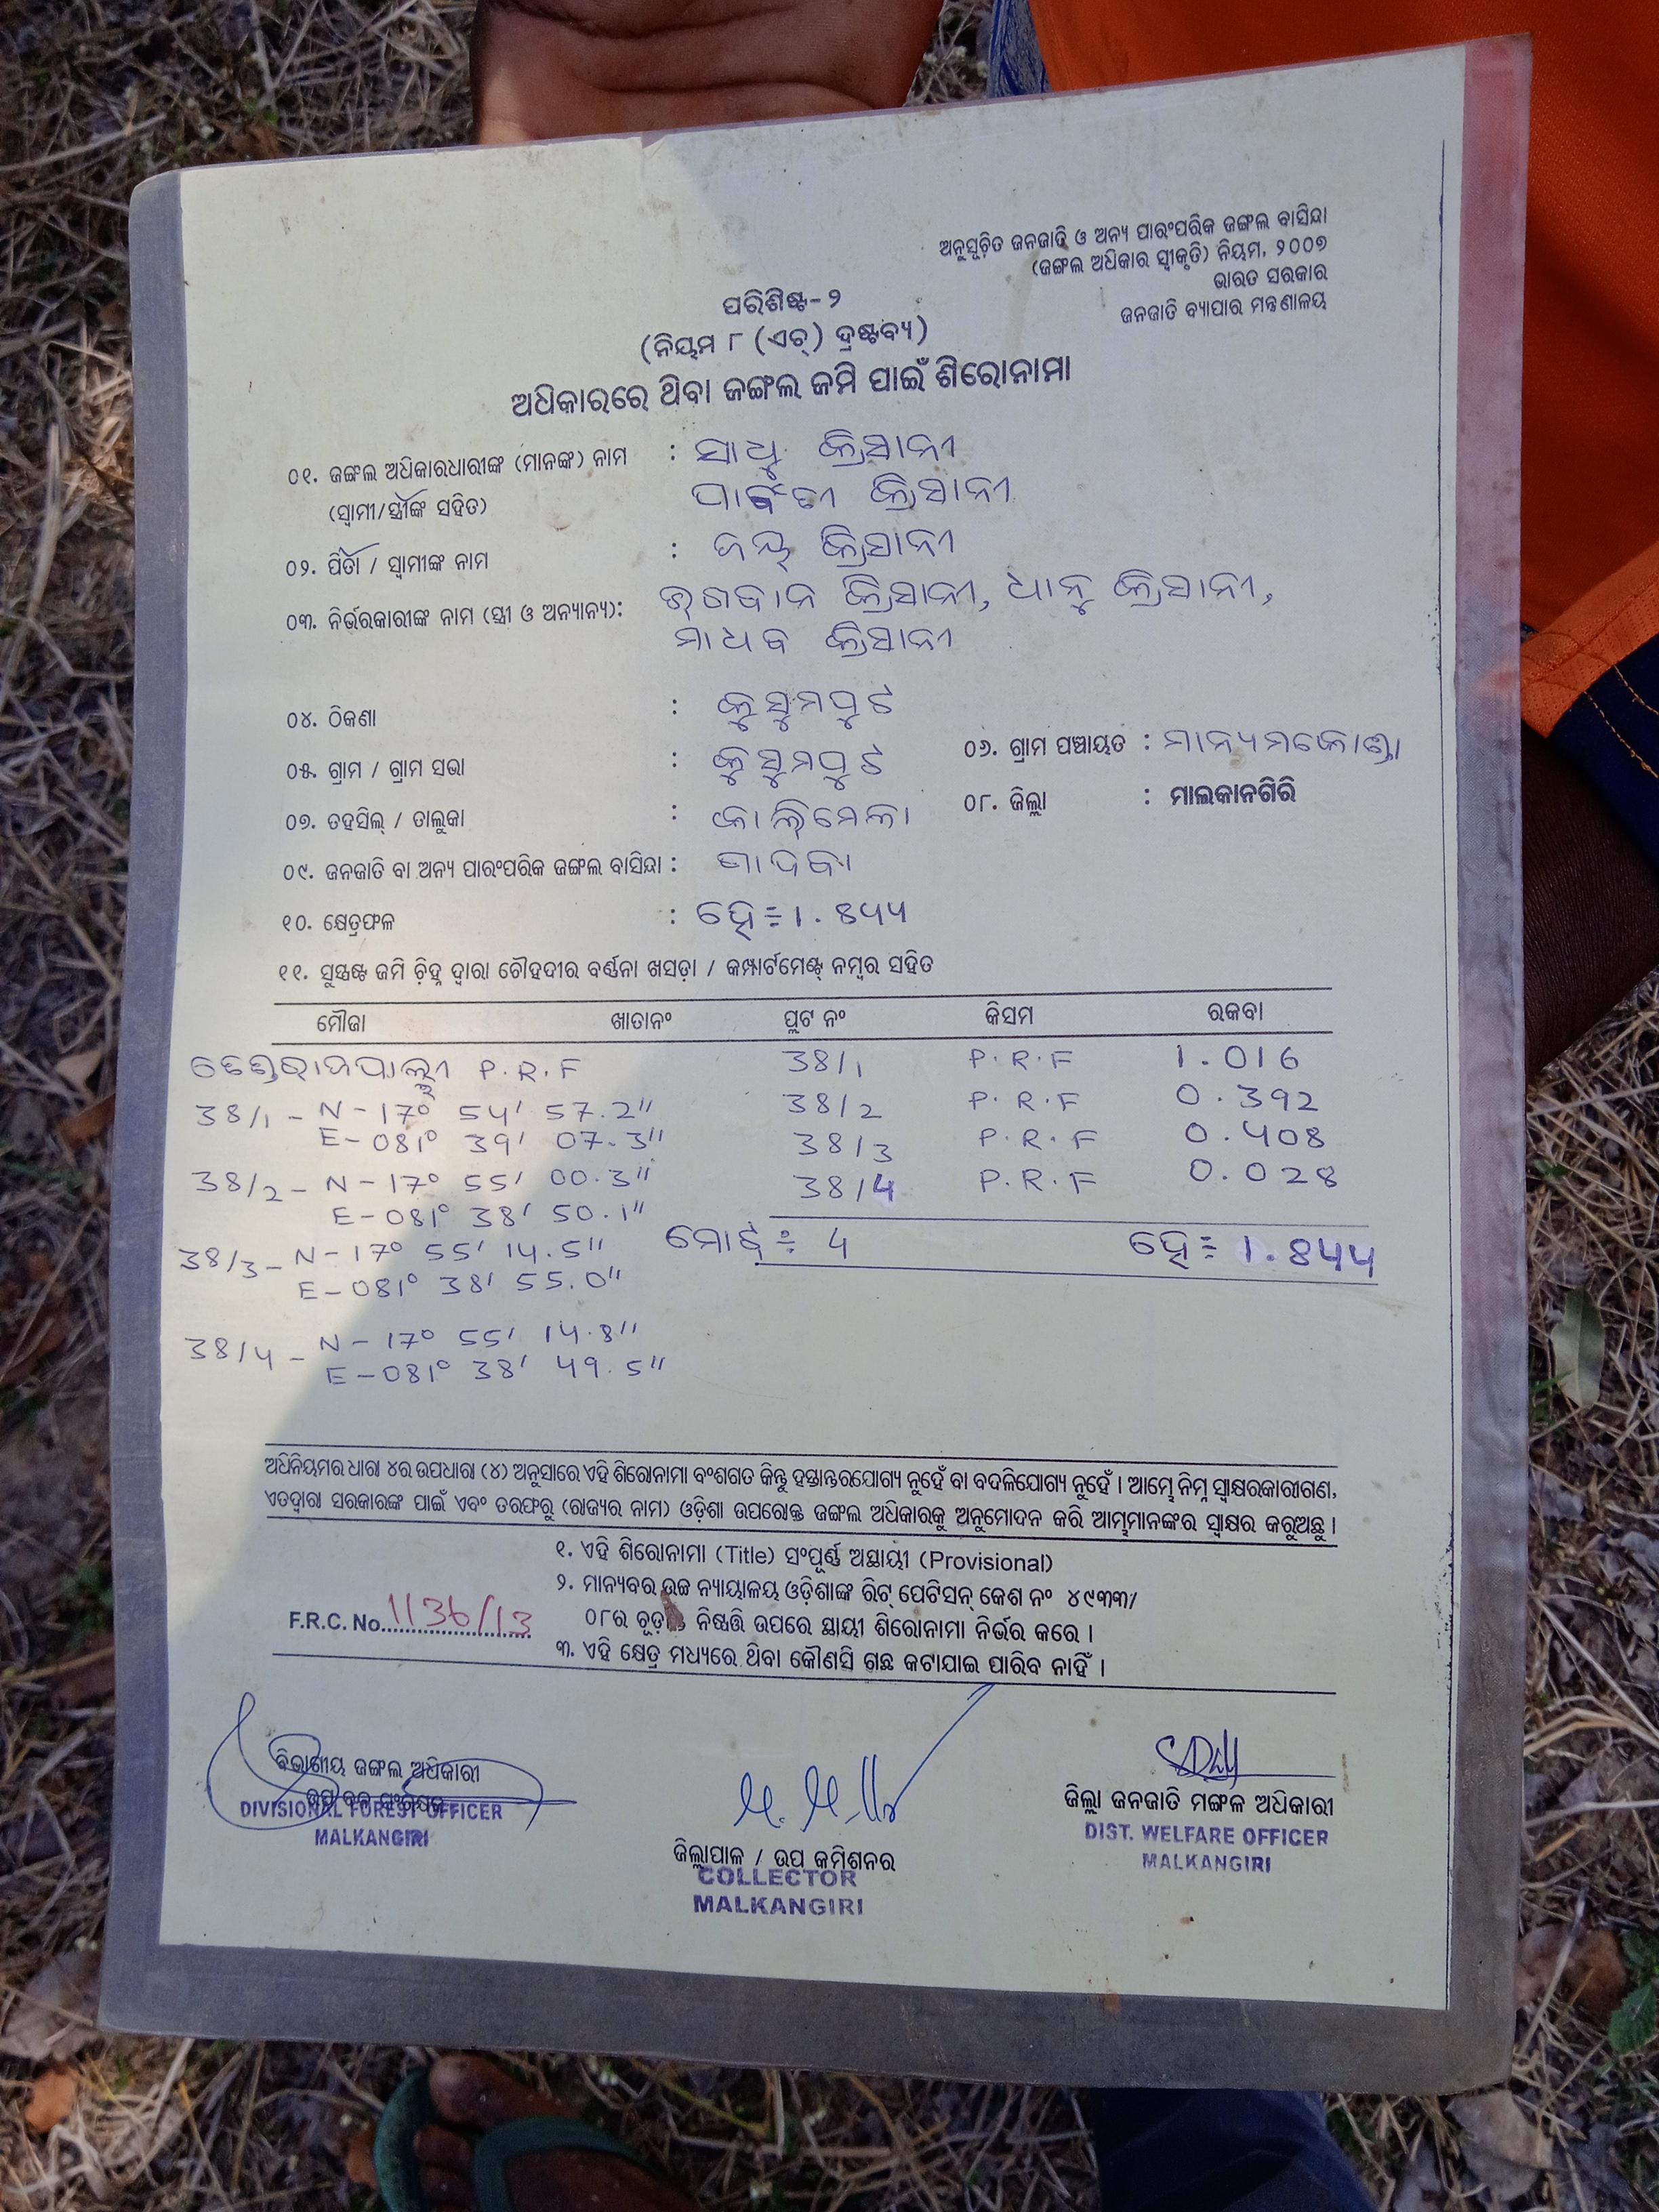 ଅନୁସୂଚିତ ଜନଜାତି ଓ ଅନ୍ୟ ପାରଂପରିକ ଜଙ୍ଗଲ ବାସିନ୍ଦା
(ଜଙ୍ଗଲ ଅଧିକାର ସ୍ୱୀକୃତି) ନିୟମ, ୨୦୦୭
ଭାରତ ସରକାର
ଜନଜାତି ବ୍ୟାପାର ମନ୍ତ୍ରଣାଳୟ
ପରିଶିଷ୍ଟ-୨
(ନିୟମ ୮ (ଏଚ୍) ଦ୍ରଷ୍ଟବ୍ୟ)
ଅଧିକାରରେ ଥିବା ଜଙ୍ଗଲ ଜମି ପାଇଁ ଶିରୋନାମା
୦୧. ଜଙ୍ଗଲ ଅଧିକାରଧାରୀଙ୍କ (ମାନଙ୍କ) ନାମ : ସାଧୁ କ୍ରିସାନୀ
(ସ୍ୱାମୀ/ସ୍ତ୍ରୀଙ୍କ ସହିତ) ପାର୍ବତୀ କ୍ରିସାନୀ
୦୨. ପିତା / ସ୍ୱାମୀଙ୍କ ନାମ : କ୍ରିସାନୀ
୦୩. ନିର୍ଭରକାରୀଙ୍କ ନାମ (ସ୍ତ୍ରୀ ଓ ଅନ୍ୟାନ୍ୟ): ଭଗବାନ କ୍ରିସାନୀ, ଧାନୁ କ୍ରିସାନୀ,
ମାଧବ କ୍ରିସାନୀ
୦୪. ଠିକଣା : କୁସୁମପୁଟ
୦୫. ଗ୍ରାମ / ଗ୍ରାମ ସଭା : କୁସୁମପୁଟ ୦୬. ଗ୍ରାମ ପଞ୍ଚାୟତ : ମାନ୍ୟମକୋଣ୍ଡା
୦୭. ତହସିଲ୍ / ତାଲୁକା : କାଲିମେଳା ୦୮. ଜିଲ୍ଲା : ମାଲକାନଗିରି
୦୯. ଜନଜାତି ବା ଅନ୍ୟ ପାରଂପରିକ ଜଙ୍ଗଲ ବାସିନ୍ଦା : ଗାଦବା
୧୦. କ୍ଷେତ୍ରଫଳ : ହେ÷ 1.844
୧୧. ସୁସ୍ପଷ୍ଟ ଜମି ଚିହ୍ନ ଦ୍ୱାରା ଚୌହଦୀର ବର୍ଣ୍ଣନା ଖସଡ଼ା / କମ୍ପାର୍ଟମେଣ୍ଟ୍ ନମ୍ବର ସହିତ
ମୌଜା ଖାତାନଂ ପ୍ଲଟ ନଂ କିସମ ରକବା
P.R.F 38/1 P.R.F 1.016
38/1 - N-17° 54' 57.2" 38/2 P.R.F 0.392
E-081° 39' 07.3" 38/3 P.R.F 0.408
38/2 - N-17° 55' 00.3" 38/4 P.R.F 0.028
E-081° 38' 50.1"
38/3 - N-17° 55' 14.5" ମୋଟ୍ ÷ 4 ହେ÷ 1.844
E-081° 38' 55.0"
38/4 - N-17° 55' 14.8"
E-081° 38' 49.5"
ଅଧିନିୟମର ଧାରା ୪ର ଉପଧାରା (୪) ଅନୁସାରେ ଏହି ଶିରୋନାମା ବଂଶଗତ କିନ୍ତୁ ହସ୍ତାନ୍ତରଯୋଗ୍ୟ ନୁହେଁ ବା ବଦଳିଯୋଗ୍ୟ ନୁହେଁ । ଆମ୍ଭେ ନିମ୍ନ ସ୍ୱାକ୍ଷରକାରୀଗଣ,
ଏତଦ୍ୱାରା ସରକାରଙ୍କ ପାଇଁ ଏବଂ ତରଫରୁ (ରାଜ୍ୟର ନାମ) ଓଡ଼ିଶା ଉପରୋକ୍ତ ଜଙ୍ଗଲ ଅଧିକାରକୁ ଅନୁମୋଦନ କରି ଆମ୍ଭମାନଙ୍କର ସ୍ୱାକ୍ଷର କରୁଅଛୁ ।
୧. ଏହି ଶିରୋନାମା (Title) ସଂପୂର୍ଣ୍ଣ ଅସ୍ଥାୟୀ (Provisional)
୨. ମାନ୍ୟବର ଉଚ୍ଚ ନ୍ୟାୟାଳୟ ଓଡ଼ିଶାଙ୍କ ରିଟ୍ ପେଟିସନ୍ କେଶ ନଂ ୪୯୩୩/
F.R.C. No. 1136/13 ୦୮ର ନିଷ୍ପତ୍ତି ଉପରେ ସ୍ଥାୟୀ ଶିରୋନାମା ନିର୍ଭର କରେ ।
୩. ଏହି କ୍ଷେତ୍ର ମଧ୍ୟରେ ଥିବା କୌଣସି ଗଛ କଟାଯାଇ ପାରିବ ନାହିଁ ।
ବିଭାଗୀୟ ଜଙ୍ଗଲ ଅଧିକାରୀ
DIVISIONAL FOREST OFFICER
MALKANGIRI
ଜିଲ୍ଲାପାଳ / ଉପ କମିଶନର
COLLECTOR
MALKANGIRI
ଜିଲ୍ଲା ଜନଜାତି ମଙ୍ଗଳ ଅଧିକାରୀ
DIST. WELFARE OFFICER
MALKANGIRI